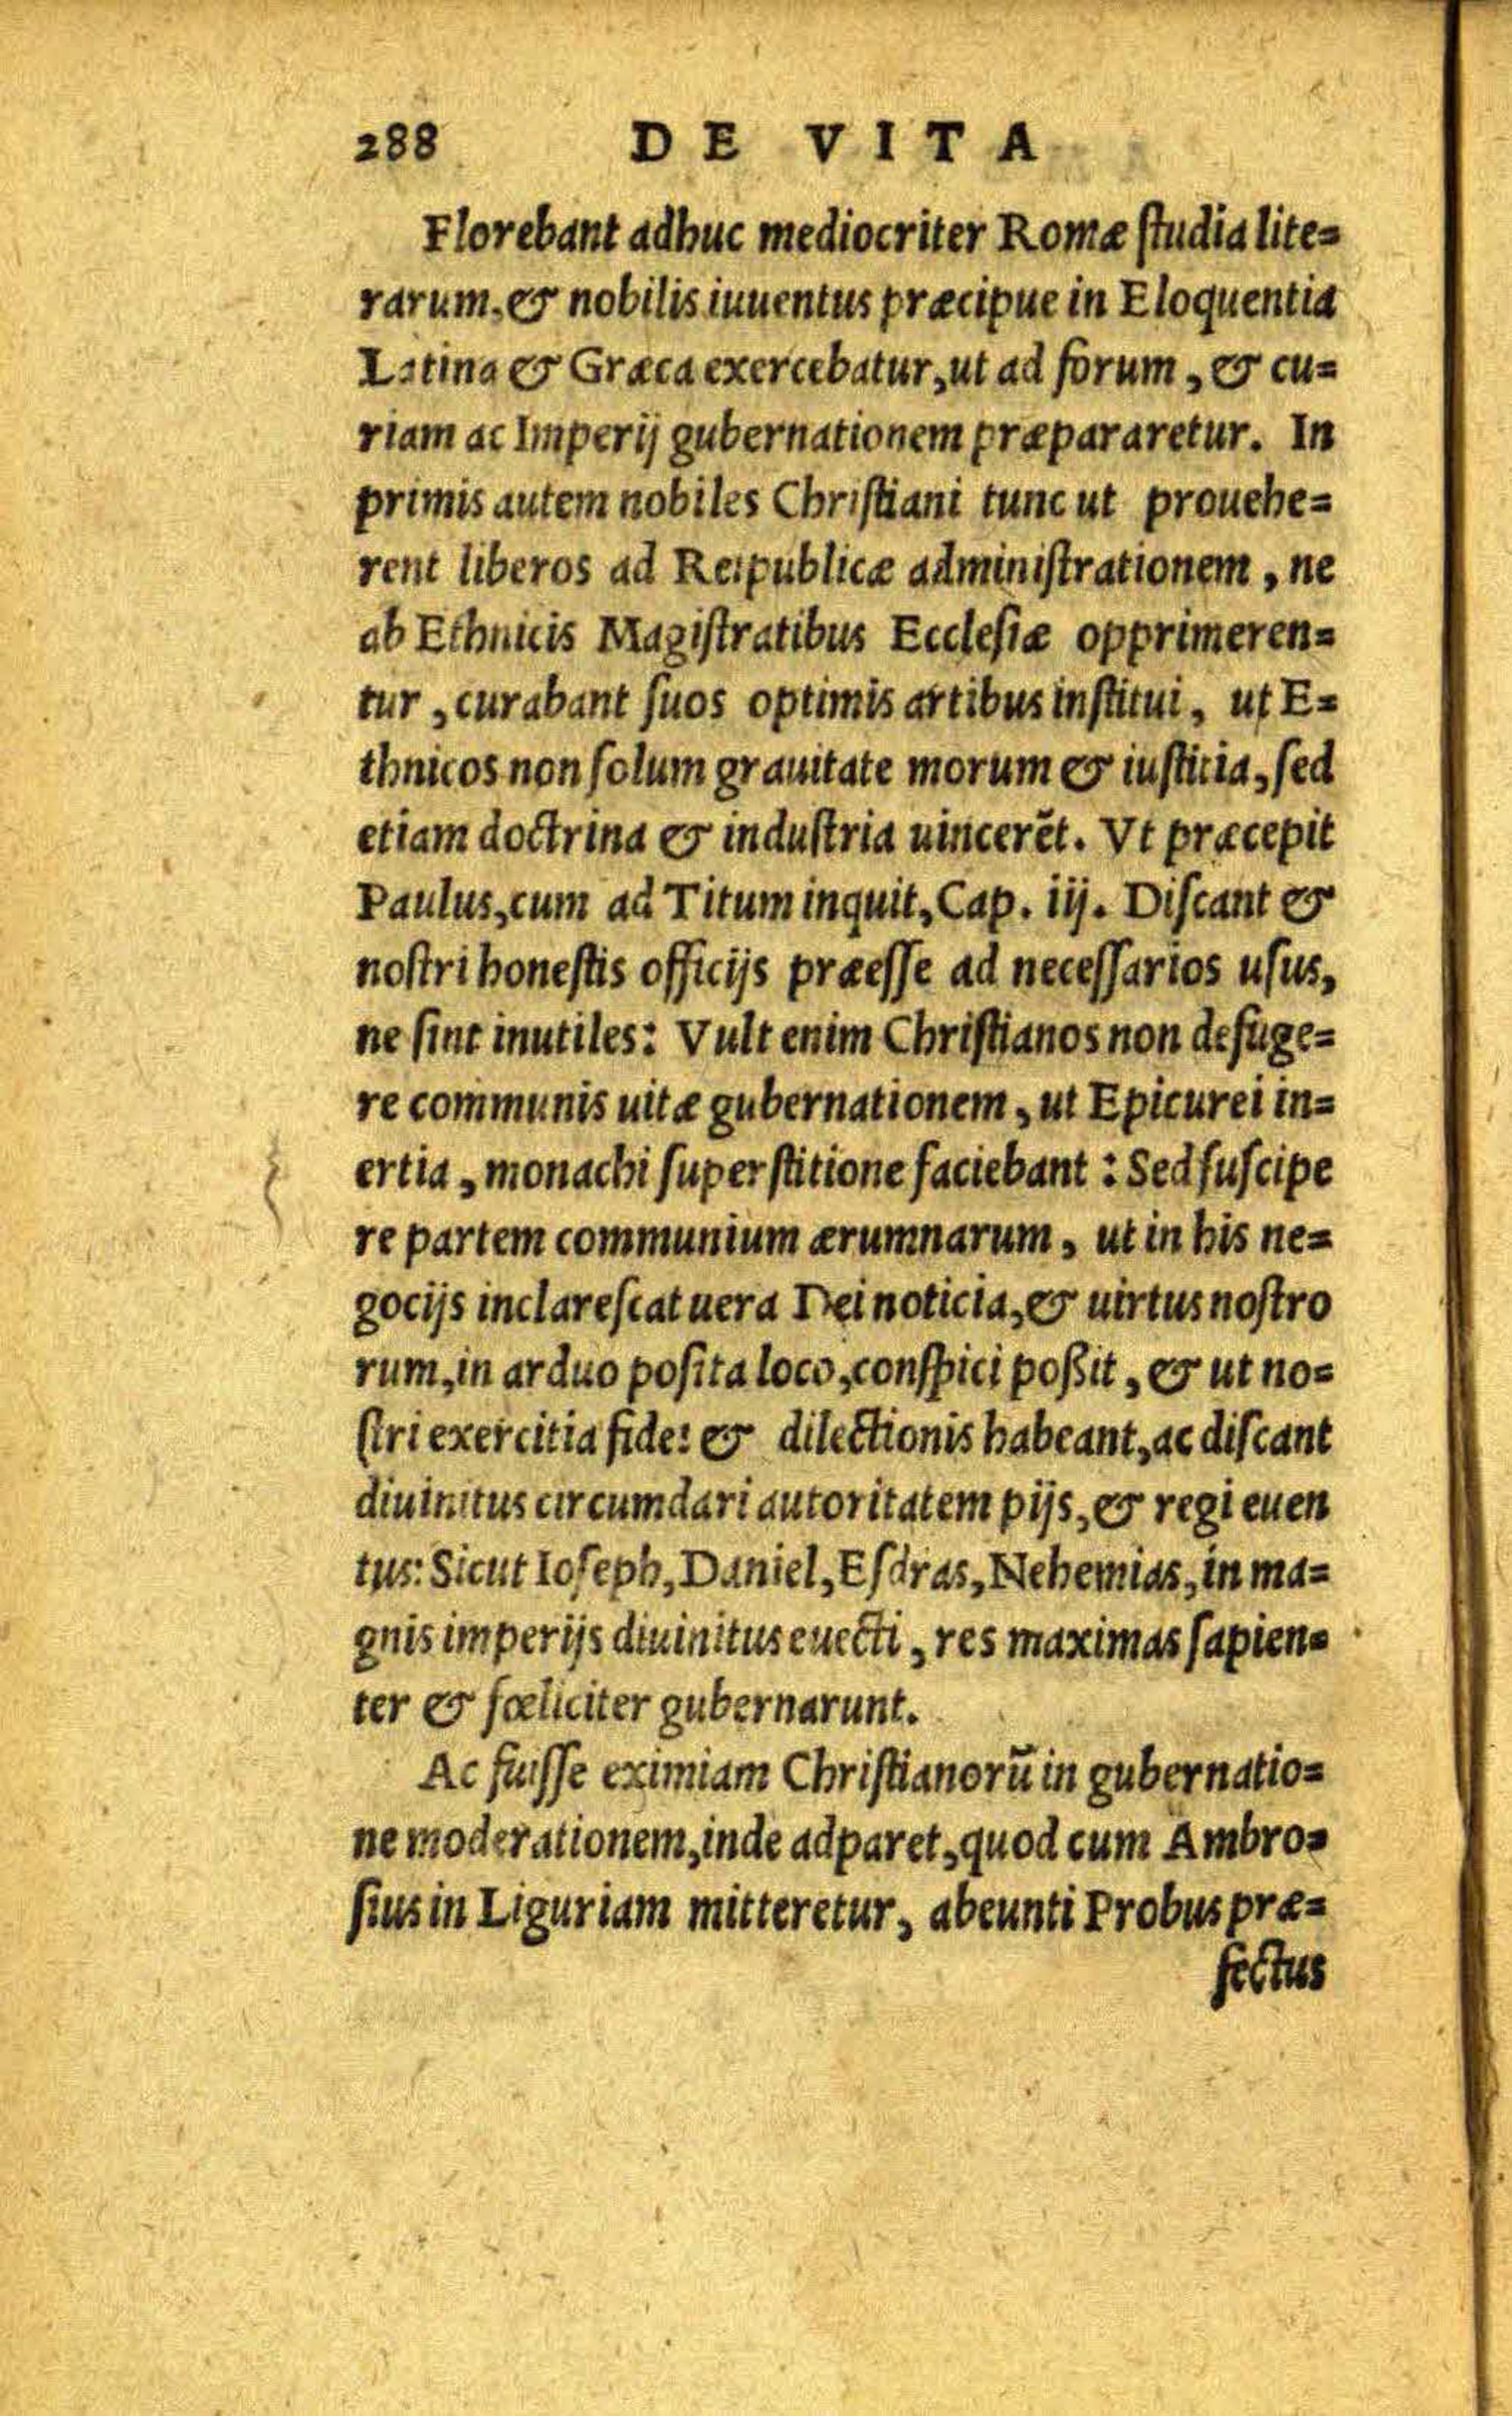 288 DE VITA
Florebant adhuc mediocriter Romæ ſtudia lite=
rarum, & nobilis iuuentus præcipue in Eloquentia
Latina & Græca exercebatur, ut ad forum, & cu=
riam ac Imperij gubernationem præpararetur. In
primis autem nobiles Chriſtiani tunc ut prouehe=
rent liberos ad Reipublicæ adminiſtrationem, ne
ab Ethnicis Magiſtratibus Eccleſiæ opprimeren=
tur, curabant ſuos optimis artibus inſtitui, ut E=
thnicos non ſolum grauitate morum & iuſticia, ſed
etiam doctrina & induſtria uincerēt. Vt præcepit
Paulus, cum ad Titum inquit, Cap. iij. Diſcant &
noſtri honeſtis officijs præeſſe ad neceſſarios uſus,
ne ſint inutiles: Vult enim Chriſtianos non defuge=
re communis uitæ gubernationem, ut Epicurei in=
ertia, monachi ſuperſtitione faciebant: Sed ſuſcipe
re partem communium ærumnarum, ut in his ne=
gocijs inclareſcat uera Dei noticia, & uirtus noſtro
rum, in arduo poſita loco, conſpici poßit, & ut no=
ſtri exercitia fidei & dilectionis habeant, ac diſcant
diuinitus circumdari autoritatem pijs, & regi euen
tus: Sicut Ioſeph, Daniel, Eſdras, Nehemias, in ma=
gnis imperijs diuinitus euecti, res maximas ſapien=
ter & fœliciter gubernarunt.
Ac fuiſſe eximiam Chriſtianorū in gubernatio=
ne moderationem, inde adparet, quod cum Ambro=
ſius in Liguriam mitteretur, abeunti Probus præ=
fectus